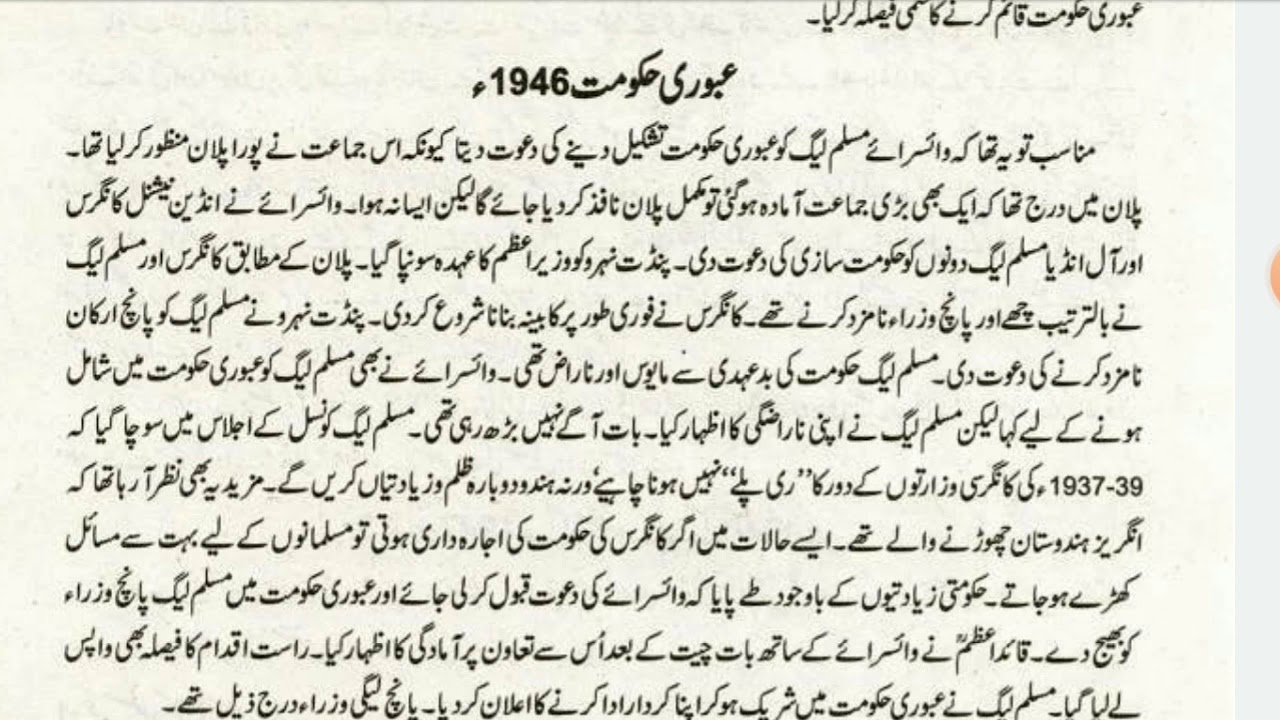 عبوری حکومت قائم کرنے کا حتمی فیصلہ کر لیا۔
عبوری حکومت 1946ء
مناسب تو یہ تھا کہ وائسرائے مسلم لیگ کو عبوری حکومت تشکیل دینے کی دعوت دیتا کیونکہ اس جماعت نے پورا پلان منظور کر لیا تھا۔
پلان میں درج تھا کہ ایک بھی بڑی جماعت آمادہ ہو گئی تو مکمل پلان نافذ کر دیا جائے گا لیکن ایسا نہ ہوا۔ وائسرائے نے انڈین نیشنل کانگرس
اور آل انڈیا مسلم لیگ دونوں کو حکومت سازی کی دعوت دی۔ پنڈت نہرو کو وزیر اعظم کا عہدہ سونپا گیا۔ پلان کے مطابق کانگرس اور مسلم لیگ
نے بالترتیب چھے اور پانچ وزراء نامزد کرنے تھے۔ کانگرس نے فوری طور پر کابینہ بنانا شروع کر دی۔ پنڈت نہرو نے مسلم لیگ کو پانچ ارکان
نامزد کرنے کی دعوت دی۔ مسلم لیگ حکومت کی بدعہدی سے مایوس اور ناراض تھی۔ وائسرائے نے بھی مسلم لیگ کو عبوری حکومت میں شامل
ہونے کے لیے کہا لیکن مسلم لیگ نے اپنی ناراضگی کا اظہار کیا۔ بات آگے نہیں بڑھ رہی تھی۔ مسلم لیگ کونسل کے اجلاس میں سوچا گیا کہ
1937-39ء کی کانگرسی وزارتوں کے دور کا ’’ری پلے‘‘ نہیں ہونا چاہیے‘ ورنہ ہندو دوبارہ ظلم و زیادتیاں کریں گے۔ مزید یہ بھی نظر آ رہا تھا کہ
انگریز ہندوستان چھوڑنے والے تھے۔ ایسے حالات میں اگر کانگرس کی حکومت کی اجارہ داری ہوتی تو مسلمانوں کے لیے بہت سے مسائل
کھڑے ہو جاتے۔ حکومتی زیادتیوں کے باوجود طے پایا کہ وائسرائے کی دعوت قبول کر لی جائے اور عبوری حکومت میں مسلم لیگ پانچ وزراء
کو بھیج دے۔ قائداعظمؒ نے وائسرائے کے ساتھ بات چیت کے بعد اُس سے تعاون پر آمادگی کا اظہار کیا۔ راست اقدام کا فیصلہ بھی واپس
لے لیا گیا۔ مسلم لیگ نے عبوری حکومت میں شریک ہو کر اپنا کردار ادا کرنے کا اعلان کر دیا۔ پانچ لیگی وزراء درج ذیل تھے۔